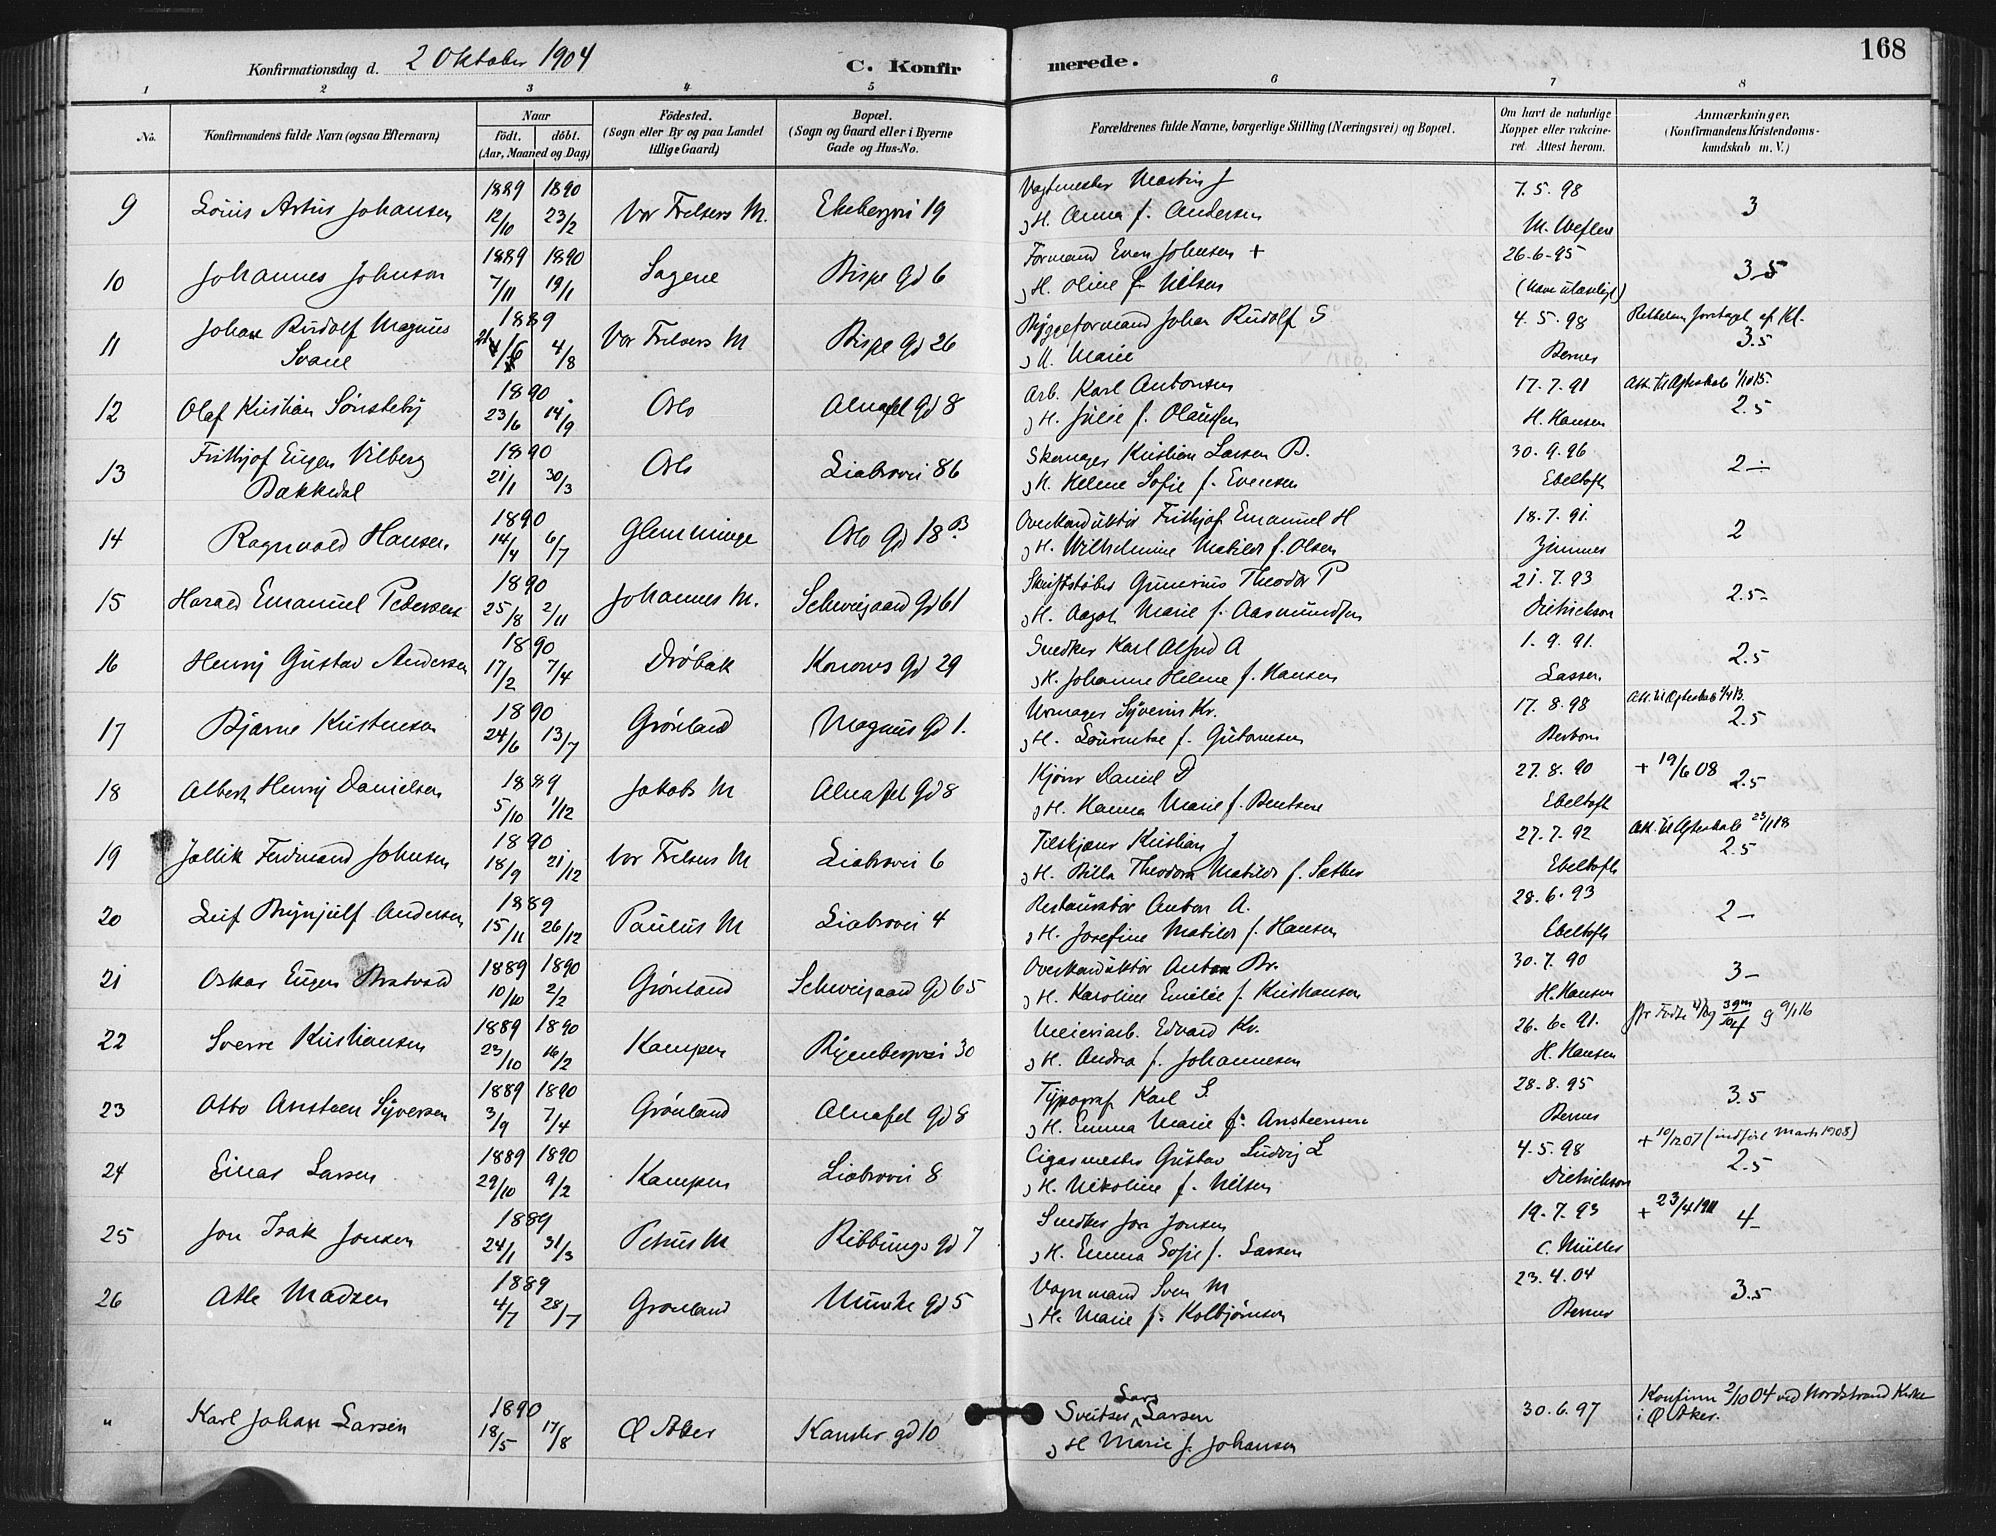 168
Konfirmationsdag d. 2 Oktober 1904
C. Konfirmerede.
1 2 3 4 5 6 7 8
No.
Konfirmandens fulde Navn (ogsaa Efternavn)
Naar
födt. döbt.
(Aar, Maaned og Dag)
Födested.
(Sogn eller By og paa Landet
tillige Gaard)
Bopæl.
(Sogn og Gaard eller i Byerne
Gade og Hus-No.
Forældrenes fulde Navne, borgerlige Stilling (Næringsvei) og Bopæl.
Om havt de naturlige
Kopper eller vakcine-
ret. Attest herom.
Anmærkninger.
(Konfirmandens Kristendoms-
kundskab m. V.)
1889 1890 Vagtmester Martin J 7.5.98
9 Louis Artur Johansen 12/10 23/2 Vor Frelsers M. Ekebergvei 19 3
H. Anna f. Andersen
1889 1890 Formand Even Johnsen + 26-6-95
10 Johannes Johnson 7/11 19/1 Sagene Bispe Gd 6 3.5
H. Oline f. Nilsen (Navn ulæseligt)
Johan Rudolf Magnus 1889 Byggeformand Johan Rudolf S 4.5.98
11 Svane 4/8 Vor Frelsers M Bispe Gd 26 3.5
H. Marie Berner
1890 Arb. Karl Antonsen 17.7.91
12 Olaf Kristian Sønsteby 23/6 14/9 Oslo Alnafet Gd 8 2.5
H. Julie f. Olausen H. Hansen
Frithjof Eugen Vilberg 1890 Skomager Kristian Larsen B. 30.9.96
13 Bakkedal 21/1 30/3 Oslo Liabrovei 86 2 -
H. Helene Sofie f. Evensen Ebeltoft
1890 Overkonduktør Frithjof Emanuel H 18.7.91.
14 Ragnvald Hansen. 14/4 6/7 Glemminge Oslo Gd 18 B. 2
H. Wilhelmine Matilde f. Olsen Zimmer
1890 Skriftstøber Gunerius Theodor P 21.7.93
15 Harald Emanuel Pedersen 25/8 2/11 Johannes M. Schweigaard Gd 61 2.5-
H. Aagot Marie f. Aasmundsen Dietrichson
1890 Snedker Karl Alfred A 1.9.91.
16 Henry Gustav Andersen 17/2 7/4 Drøbak Konows Gd 29 2.5
H. Johanne Helene f. Hansen Lassen.
1890 Urmager Syverin Kr. 17.8.98
17 Bjarne Kristensen 24/6 13/7 Grønland Magnus Gd 1. 2.5
1889 Daniel D 27.8.90 + 19/6 08
18 Albert Henry Danielsen 5/10 1/12 Jakobs M Alnafet Gd 8 2.5
H. Hanna Marie f. Bentsen Ebeltoft
1890 Kristian J 27.7.92
19 Ferdinand Johnsen 18/9 21/12 Vor Frelsers M Liabrovei 6 2.5
Theodora Matilde f. Sæther Ebeltoft
1889 Restauratør Anton A. 28.6.93
20 Leif Brynjulf Andersen 15/11 26/12 Paulus M Liabrovei 4 2 -
H. Josefine Matilde f. Hansen Ebeltoft
1889 1890 Overkonduktør Anton Br. 30.7.90
21 Oskar Eugen Bratvold 10/10 2/2 Grønland Schweigaard Gd 65 3 -
H. Karoline Emilie f. Kristiansen H. Hansen
1889 1890 Meieriarb. Edvard Kr. 26.6.91.
22 Sverre Kristiansen 23/10 16/2 Kampen Ryenbergvei 30
H. Andrea f. Johannesen H. Hansen
1889 1890 Typograf Karl S. 28.8.95
23 Otto Ansteen Syversen 3/9 7/4 Grønland Alnafet Gd 8 3.5
H. Emma Marie f. Ansteensen Berner
1889 1890 Cigarmester Gustav Ludvig L 4.5.98 + 10/12 07 (indført Marts 1908)
24 Einar Larsen 29/10 9/2 Kampen Liabrovei 8 2.5
H. Nikoline f. Nilsen Dietrichson
1889 Snedker Jon Jonsen 19.7.93 + 23/4 1911
25 Jon Isak Jonsen 24/1 31/3 Petrus M Ribbungs gd 7 4 -
H. Emma Sofie f. Larsen C. Müller
1889 Vognmand Sven M 23.4.04
26 Atle Madsen 4/7 28/7 Grønland Munke gd 5 3.5
H. Marie f. Kolbjørnsen Berner
1890 Sveitser Lars Larsen 30.6.97 Konfirm 2/10 04 ved Nordstrand Kirke
" Karl Johan Larsen 18/5 17/8 Ø Aker Kanslergd 10 i Ø Aker.
H Marie f. Johansen